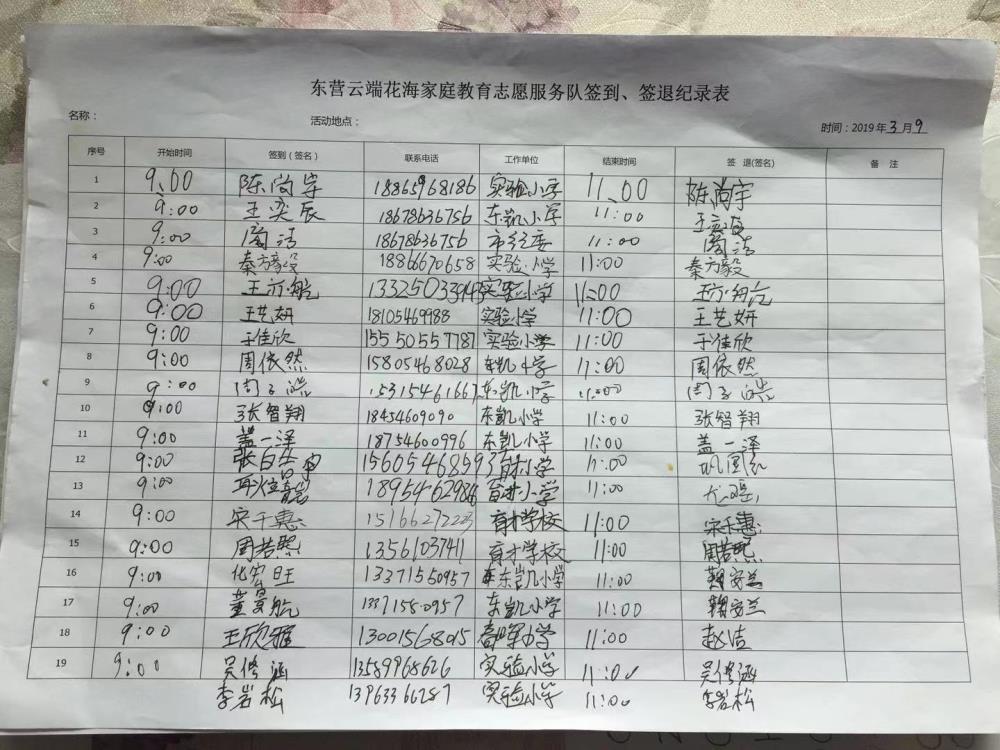 东营云端花海家庭教育志愿服务队签到、签退纪录表
名称： 活动地点： 时间：2019年3月9
序号 开始时间 签到（签名） 联系电话 工作单位 结束时间 签 退(签名) 备 注
1 9:00 陈尚宇 18865968186 实验小学 11:00 陈尚宇
2 9:00 王奕辰 18678636756 东凯小学 11:00
3 9:00 周洁 18678636756 市纪委 11:00 周洁
4 9:00 秦方毅 18866670658 实验小学 11:00 秦方毅
5 9:00 王亦航 实验小学 11:00 王亦航
6 9:00 王艺妍 18105469988 实验小学 11:00 王艺妍
7 9:00 于佳欣 15550557787 实验小学 11:00 于佳欣
8 9:00 周依然 15805468028 东凯小学 11:00 周依然
9 9:00 周子皓 15315461667 东凯小学 11:00 周子皓
10 9:00 张智翔 18454609090 东凯小学 11:00 张智翔
11 9:00 盖一泽 18754600996 东凯小学 11:00 盖一泽
12 9:00 育才小学 11:00
13 9:00 育才小学 11:00
14 9:00 宋千惠 15166272223 育才学校 11:00 宋千惠
15 9:00 周若熙 13561037411 育才学校 11:00 周若熙
16 9:00 13371550957 东凯小学 11:00
17 9:00 董景航 东凯小学 11:00
18 9:00 王欣雅 13001568015 春晖小学 11:00 赵洁
19 9:00 吴修涵 13589968626 实验小学 11:00 吴修涵
李岩松 13963366287 实验小学 11:00 李岩松